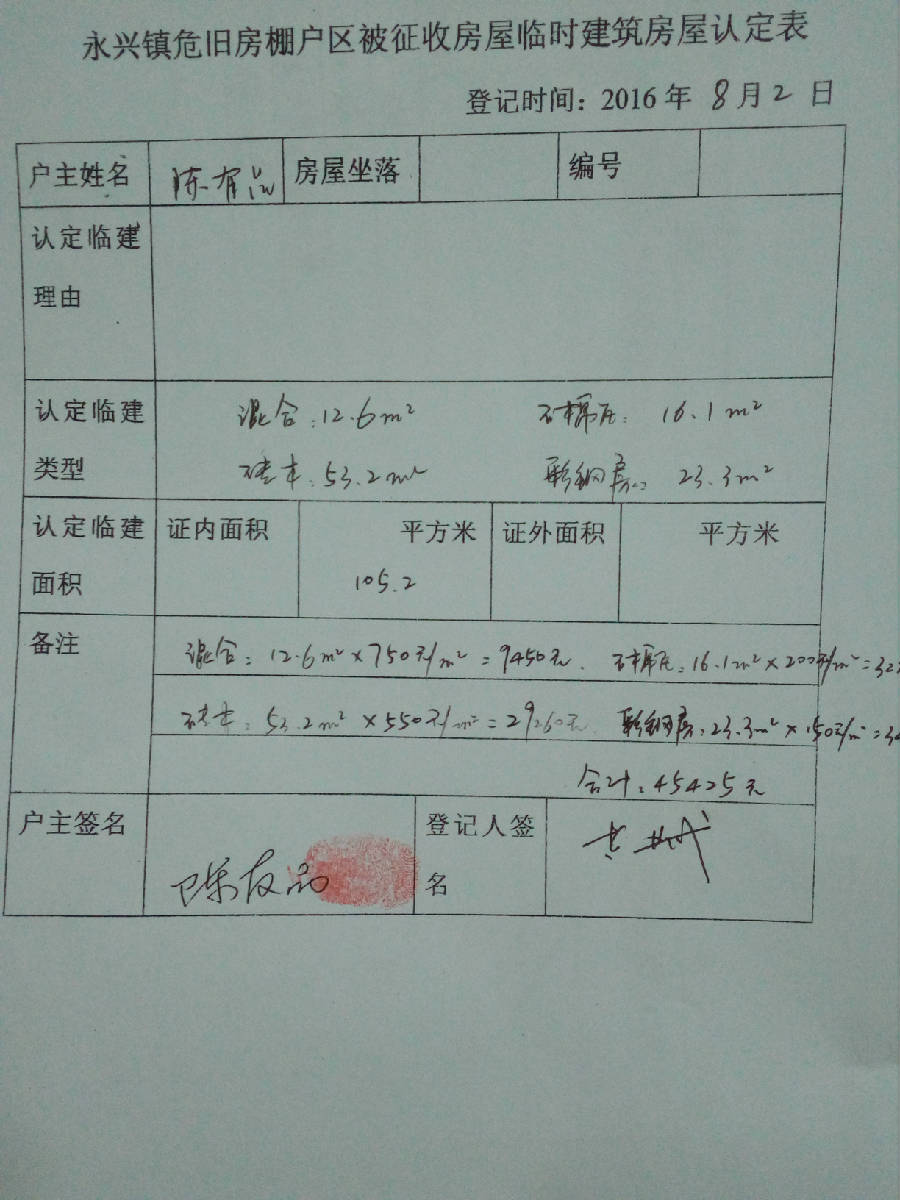 永兴镇危旧房棚户区被征收房屋临时建筑房屋认定表
登记时间：2016 年 8 月 2 日
户主姓名 陈有品 房屋坐落 编号
认定临建
理由
认定临建 混合：12.6m² 石棉瓦：16.1m²
类型 砖木：53.2m² 彩钢房：23.3m²
认定临建 证内面积 平方米 证外面积 平方米
面积 105.2
备注 混合：12.6m²×750元/m²=9450元. 石棉瓦：16.1m²×200元/m²=32
砖木：53.2m²×550元/m²=29260元 彩钢房：23.3m²×150元/m²=34
合计：45425元
户主签名 陈友品 登记人签
名